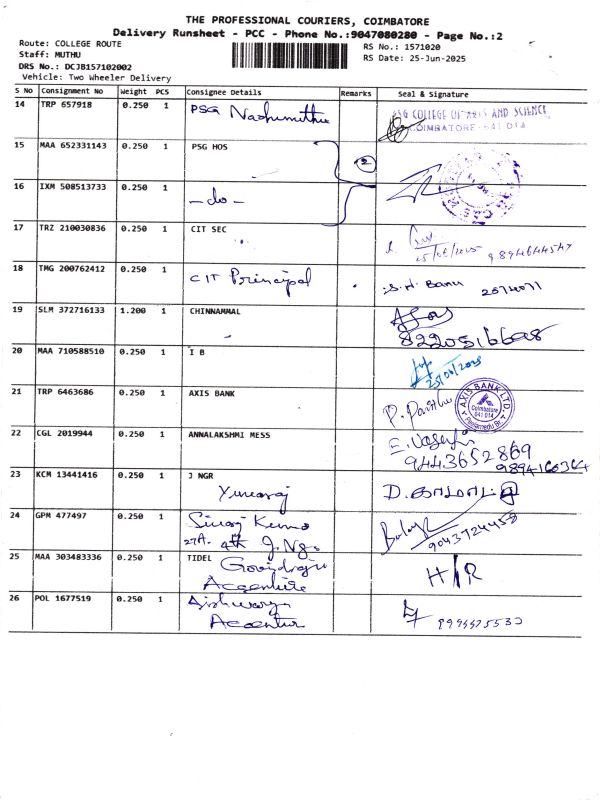 THE PROFESSIONAL COURIERS, COIMBATORE
Delivery Runsheet - PCC - Phone No.:9047080280 - Page No.:2
Route: COLLEGE ROUTE
RS No.: 1571020
Staff: MUTHU
RS Date: 25-Jun-2025
DRS No.: DCJB157102002
Vehicle: Two Wheeler Delivery
S No Consignment No Weight PCS Consignee Details Remarks Seal & Signature
14 TRP 657918 0.250 1 PSG
PSG COLLEGE OF ARTS AND SCIENCE
COIMBATORE - 641 014
15 MAA 652331143 0.250 1 PSG HOS
2
16 IXM 508513733 0.250 1 - do -
17 TRZ 210030836 0.250 1 CIT SEC
25/06/2025 9894644547
18 TMG 200762412 0.250 1 CIT Principal S.H. Banu 2574071
19 SLM 372716133 1.200 1 CHINNAMMAL
8220516698
20 MAA 710588510 0.250 1 I B
25/06/2025
21 TRP 6463686 0.250 1 AXIS BANK
AXIS BANK LTD.
Coimbatore
641 014
22 CGL 2019944 0.250 1 ANNALAKSHMI MESS
9443652869
9894160364
23 KCM 13441416 0.250 1 J NGR
Yuvaraj
24 GPM 477497 0.250 1 Siraj
27A. 4th J. Ngr
9043724458
25 MAA 303483336 0.250 1 TIDEL Govindraju
Accenture
H/R
26 POL 1677519 0.250 1 Aishwarya
Accentur